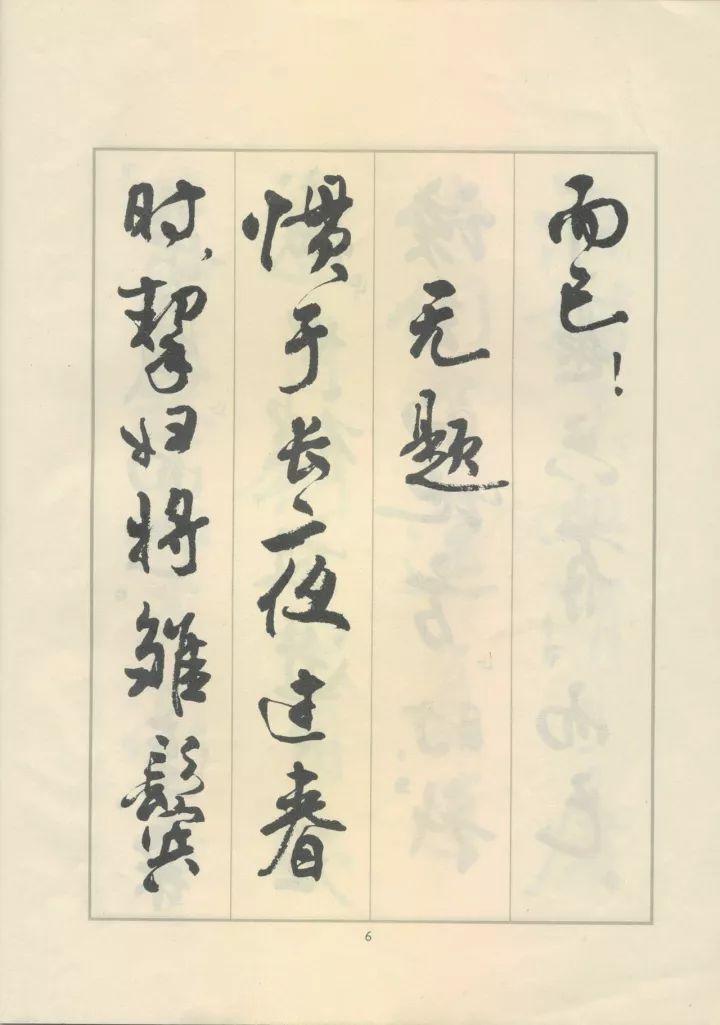 而已！
无题
惯于长夜过春
时，挈妇将雏鬓
6